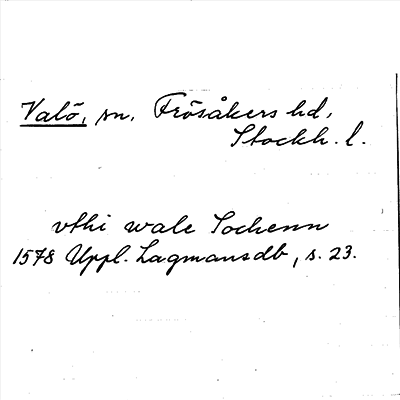 Valö, sn. Frösåkers hd,
Stockh. l.
vthi wale Sochenn
1578 Uppl. Lagmansdb, s. 23.